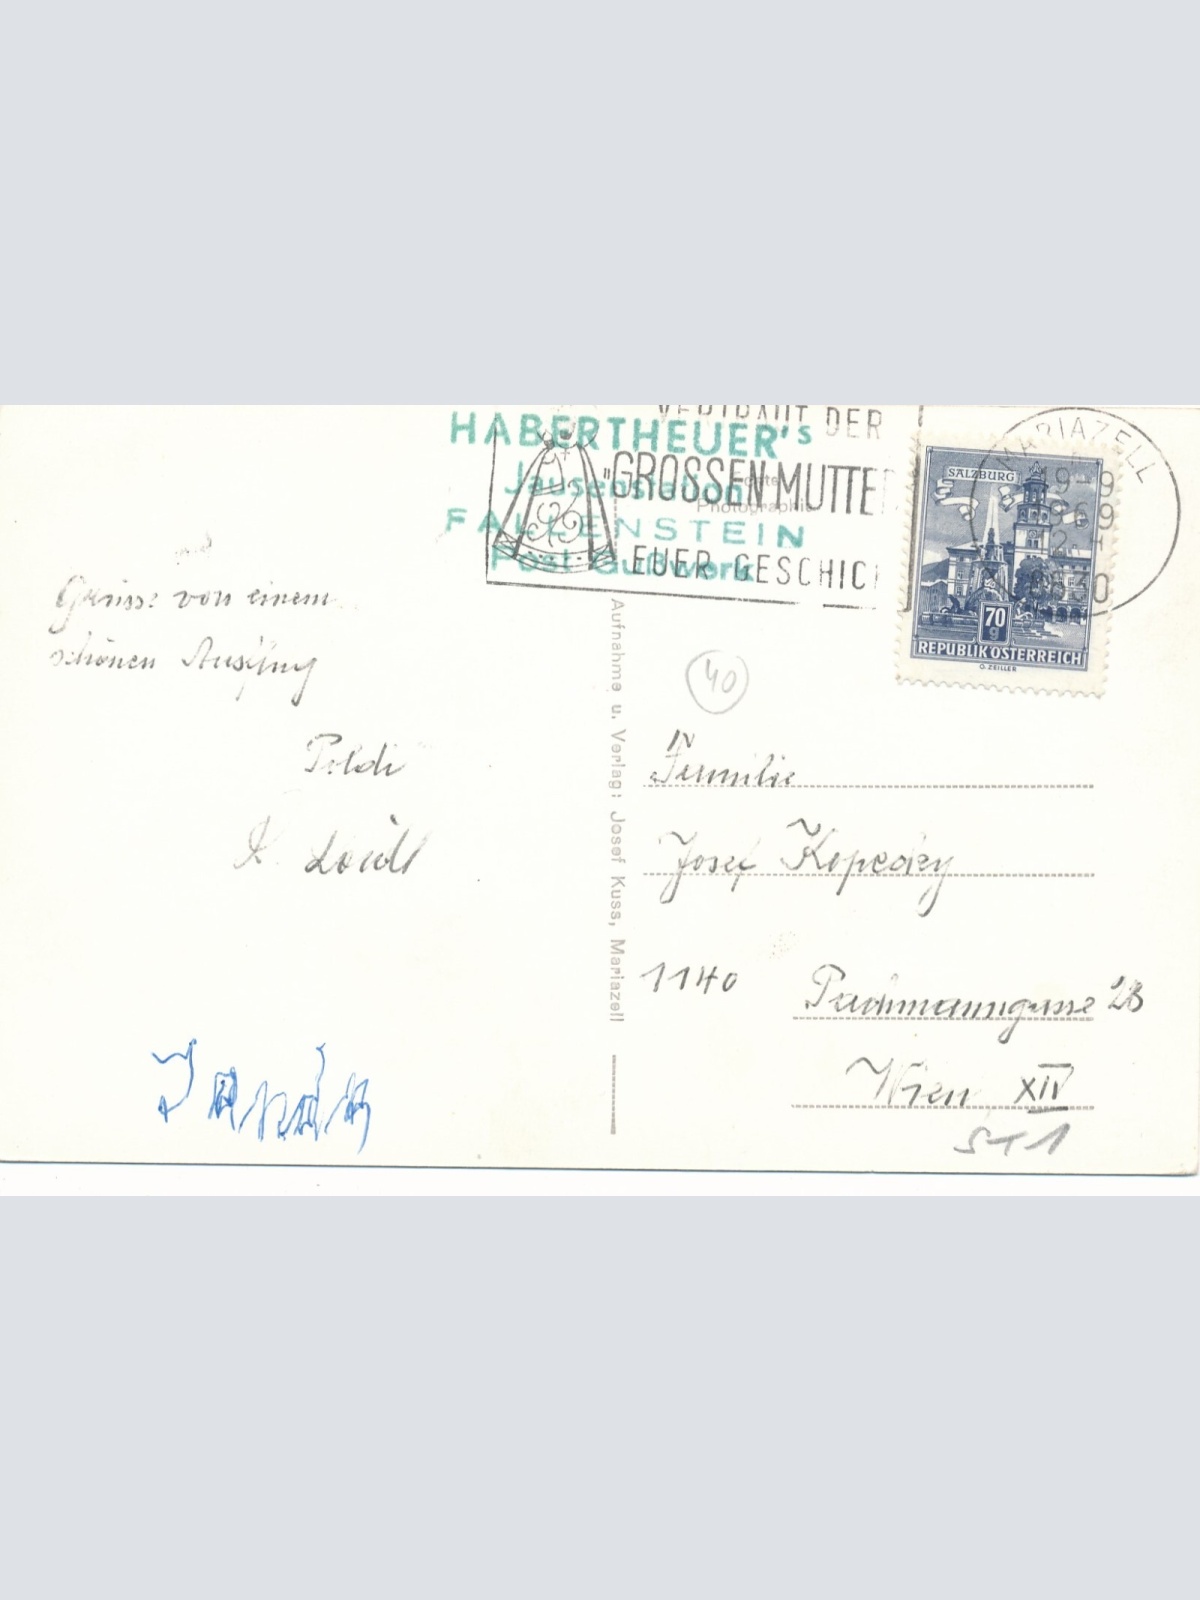 HABERTHEUER's
Jausenstation
FALLENSTEIN
Post Gußwerk
VERTRAUT DER
"GROSSEN MUTTER
EUER GESCHICK
Echte
Photographie
MARIAZELL
9-9
8630
SALZBURG
70
g
REPUBLIK ÖSTERREICH
O. ZEILLER
Grüsse von einem
schönen Ausflug
Poldi
Aufnahme u. Verlag: Josef Kuss, Mariazell
40
Familie
Josef Kopecky
1140 Pachmanngasse 28
Wien XIV
ST 1